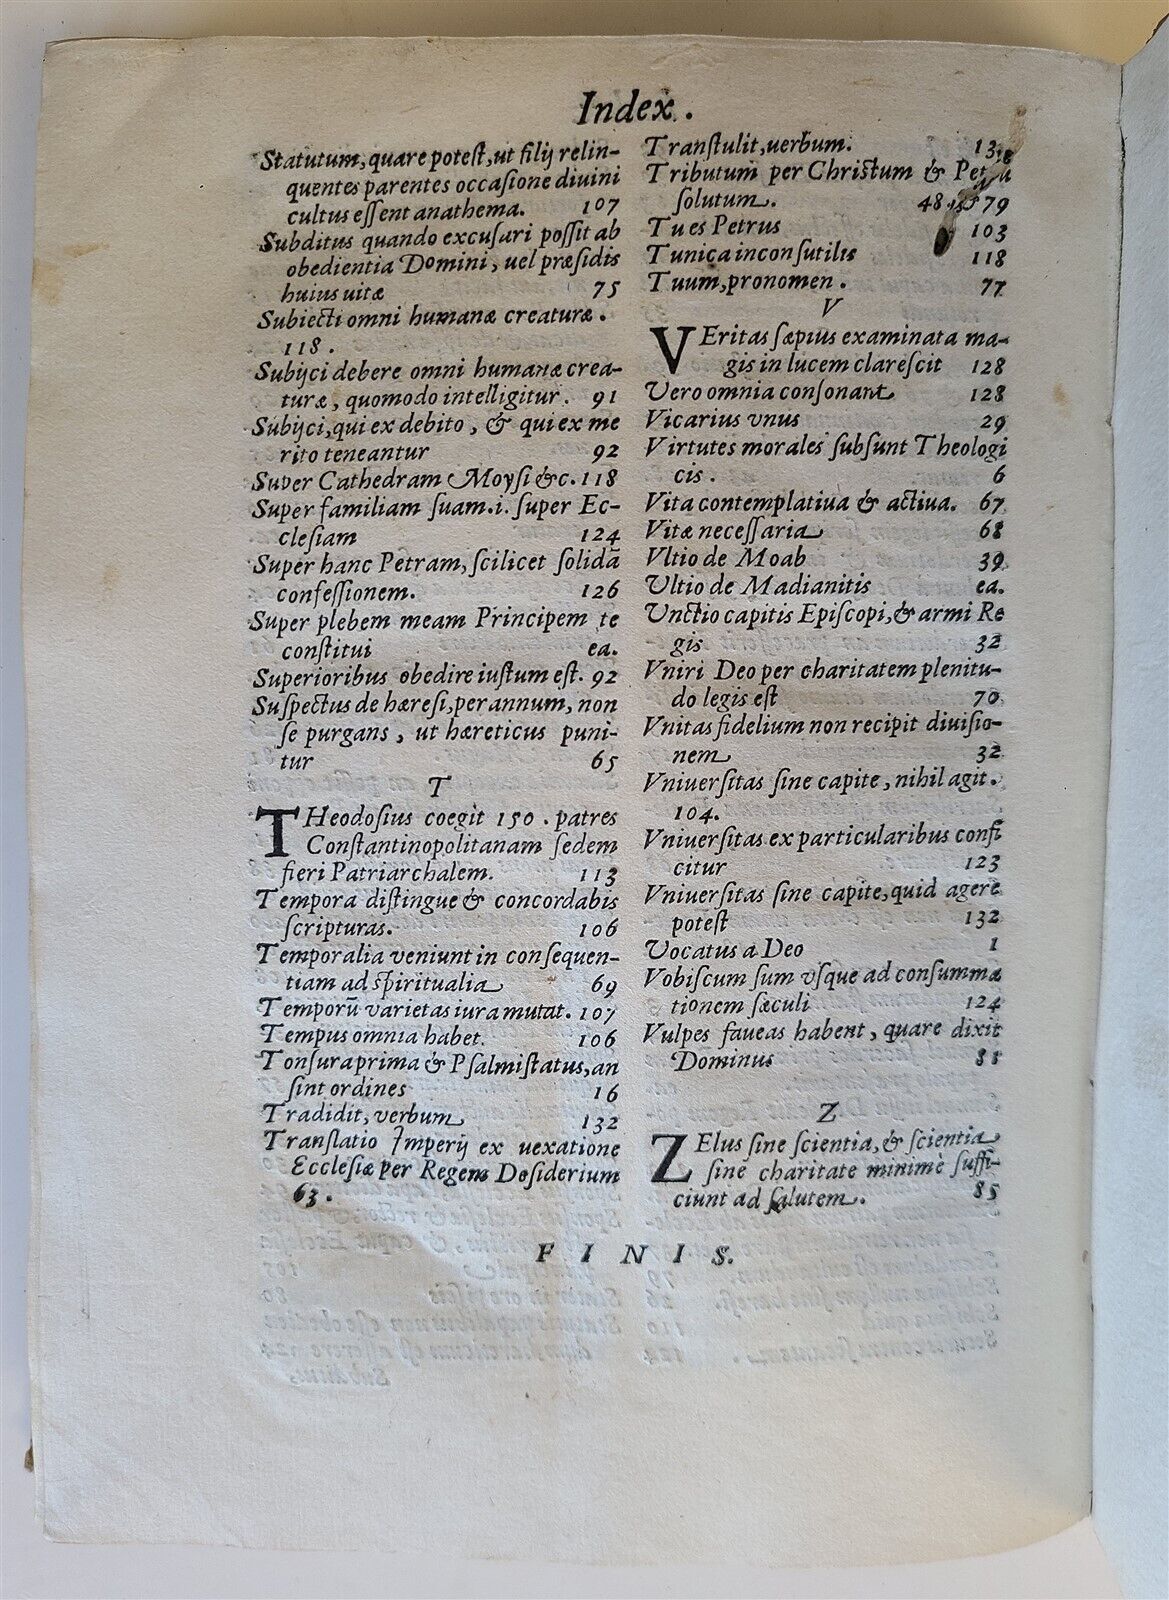 Index.
Statutum, quare potest, ut filij relin-
quentes parentes occasione diuini
cultus essent anathema. 107
Subditus quando excusari possit ab
obedientia Domini, uel præsidis
huius uitæ 75
Subiecti omni humanæ creaturæ.
118.
Subijci debere omni humanæ crea-
turæ, quomodo intelligitur. 91
Subijci, qui ex debito, & qui ex me
rito teneantur 92
Super Cathedram Moysi &c. 118
Super familiam suam .i. super Ec-
clesiam 124
Super hanc Petram, scilicet solidã
confessionem. 126
Super plebem meam Principem te
constitui ea.
Superioribus obedire iustum est. 92
Suspectus de hæresi, per annum, non
se purgans, ut hæreticus puni-
tur 65
T
THeodosius coegit 150. patres
Constantinopolitanam sedem
fieri Patriarchalem. 113
Tempora distingue & concordabis
scripturas. 106
Temporalia veniunt in consequen-
tiam ad spiritualia 69
Temporũ varietas iura mutat. 107
Tempus omnia habet. 106
Tonsura prima & Psalmistatus, an
sint ordines 16
Tradidit, verbum 132
Translatio Imperij ex uexatione
Ecclesiæ per Regem Desiderium
63.
Transtulit, uerbum. 13
Tributum per Christum &
solutum. 48 79
Tu es Petrus 103
Tunica inconsutilis 118
Tuum, pronomen. 77
V
VEritas sæpius examinata ma-
gis in lucem clarescit 128
Vero omnia consonant 128
Vicarius vnus 29
Virtutes morales subsunt Theologi
cis. 6
Vita contemplatiua & actiua. 67
Vitæ necessaria 68
Vltio de Moab 39
Vltio de Madianitis ea.
Vnctio capitis Episcopi, & armi Re
gis 32
Vniri Deo per charitatem plenitu-
do legis est 70
Vnitas fidelium non recipit diuisio-
nem 32
Vniuersitas sine capite, nihil agit.
104.
Vniuersitas ex particularibus confi
citur 123
Vniuersitas sine capite, quid agere
potest 132
Vocatus a Deo 1
Vobiscum sum vsque ad consumma
tionem sæculi 124
Vulpes faueas habent, quare dixit
Dominus 88
Z
ZElus sine scientia, & scientia
sine charitate minimè suffi-
ciunt ad salutem. 85
FINIS.